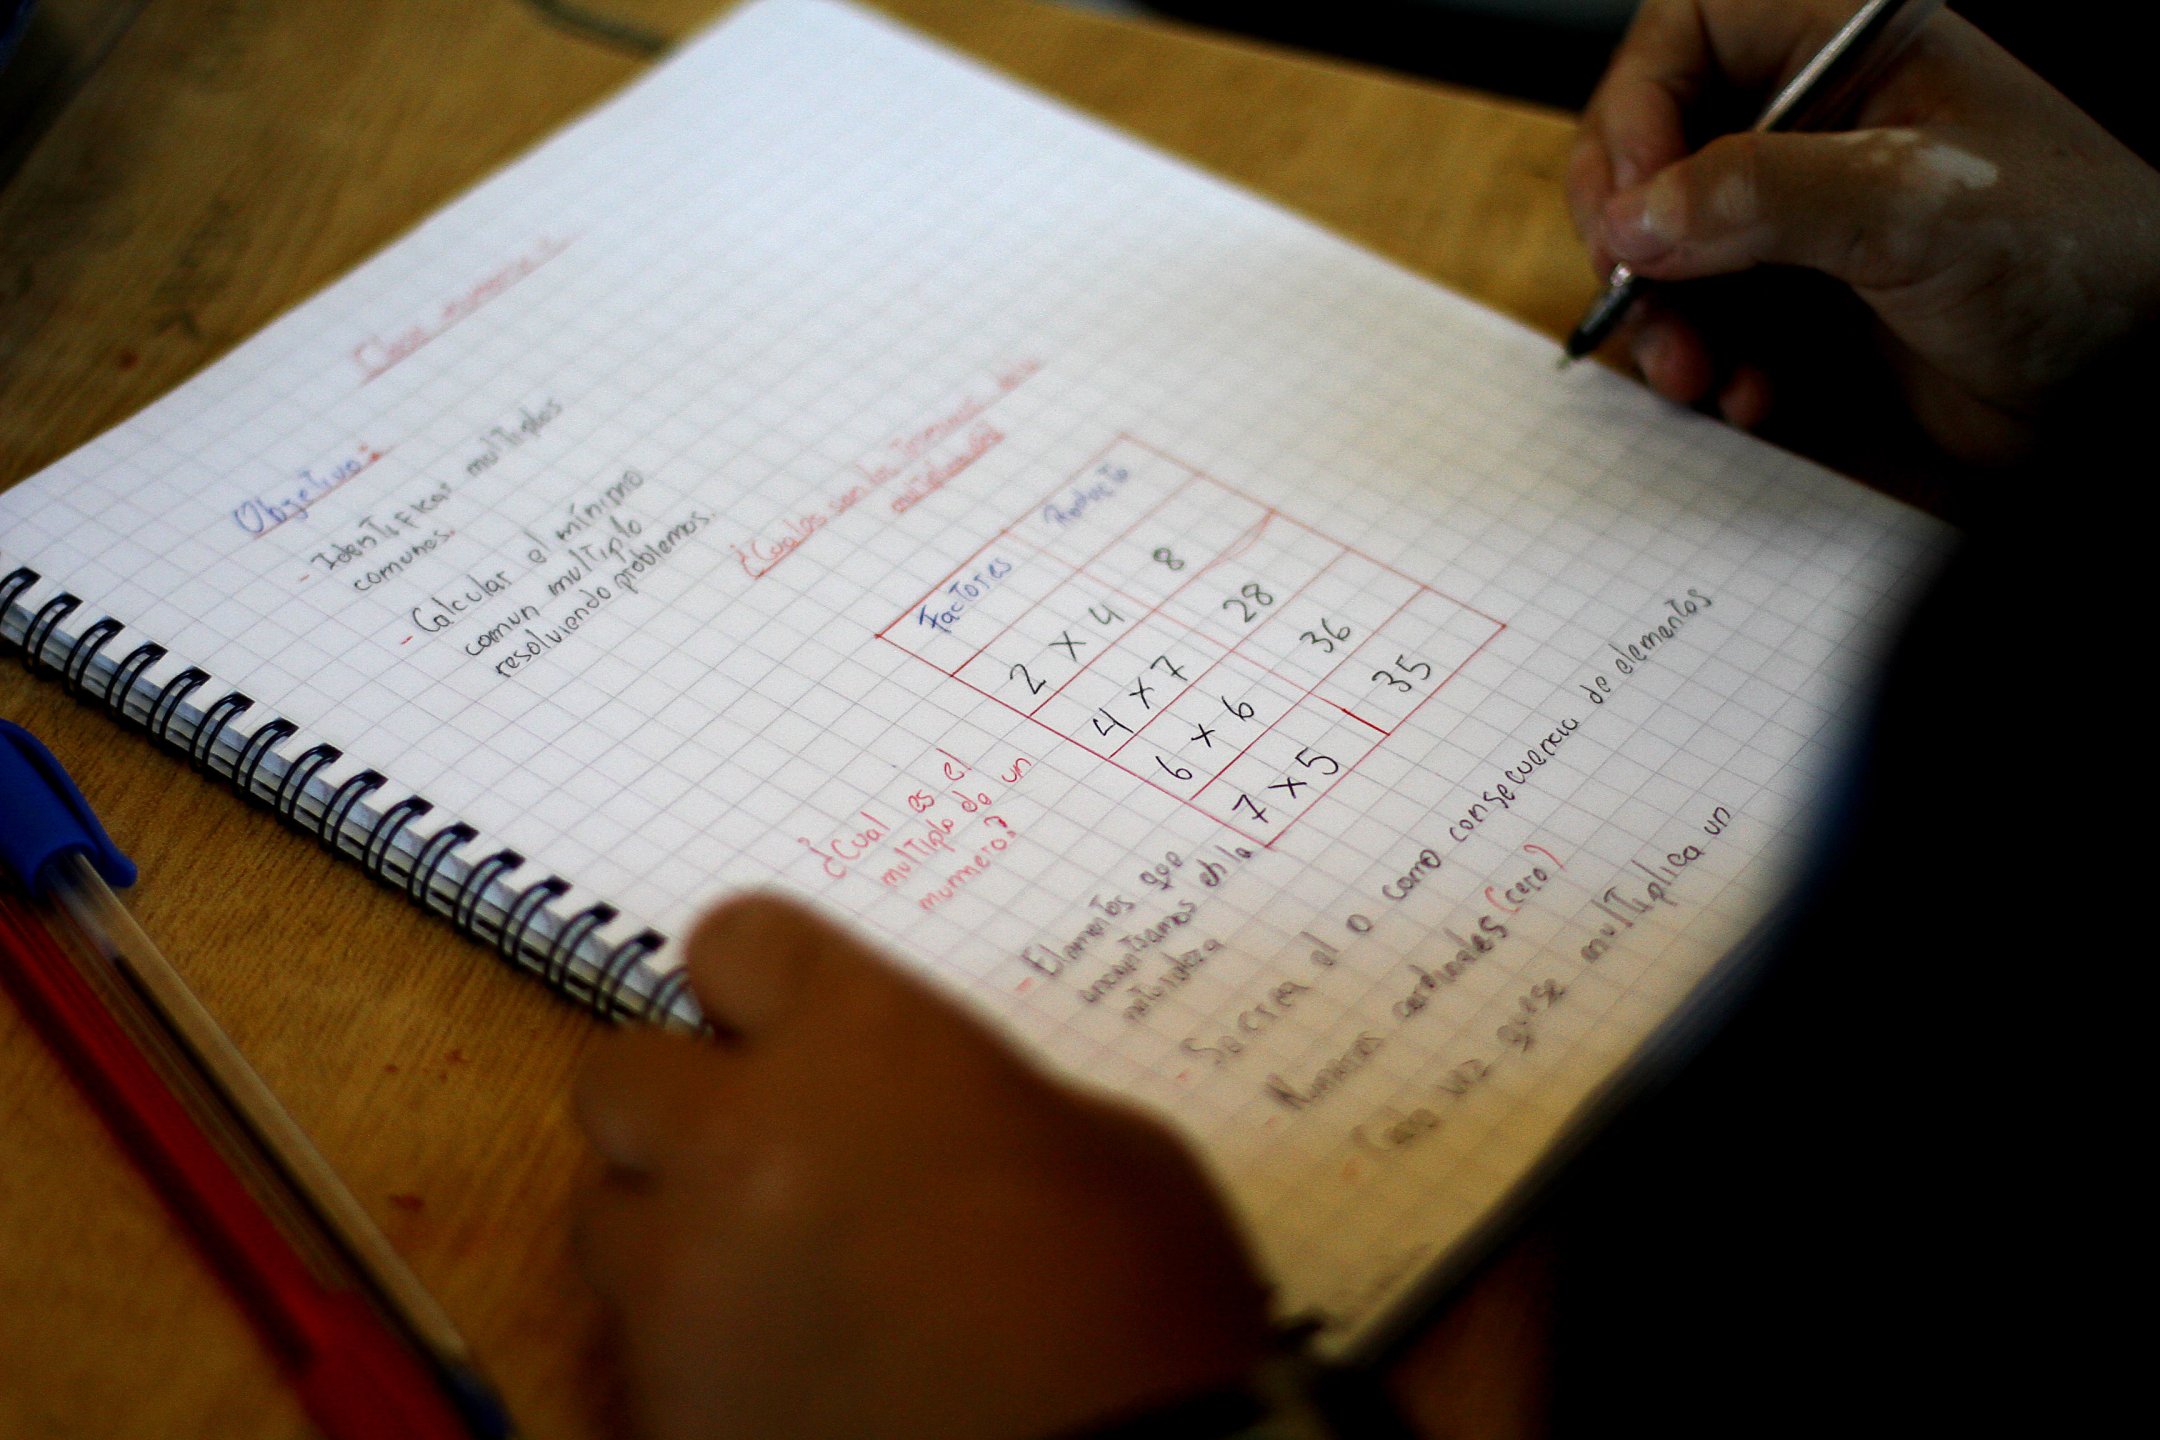 Clase numero 2
Objetivo:
- Identificar multiplos
comunes.
- Calcular el mínimo
comun multiplo
resolviendo problemas.
¿Cuales son los terminos de la
multiplicación
Factores Producto
2 x 4 8
4 x 7 28
6 x 6 36
7 x 5 35
¿Cual es el
multiplo de un
numero?
- Elementos que
encontramos en la
naturaleza
- Se crea el 0 como consecuencia de elementos
Numeros cardinales (cero)
- Cada vez que se multiplica un